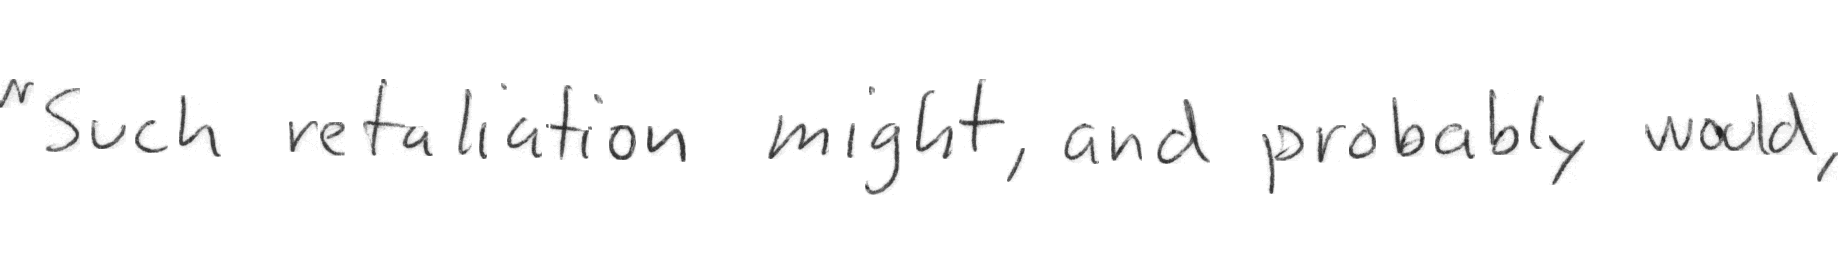 "Such retaliation might, and probably would,